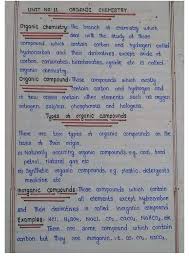 UNIT NO 11 ORGANIC CHEMISTRY
Organic chemistry: The branch of chemistry which
deal with the study of those
compound which contain carbon and hydrogen called
hydrocarbon and their derivatives except oxide of
carbon, carbonates, bicarbonates, cyanide etc is called
organic chemistry.
Organic compound: Those compounds which mostly
contain carbon and hydrogen and
in few cases contain other elements such as oxygen
nitrogen, sulphur, phosphorus and halogens.
Types of organic compounds
There are two types of organic compounds on the
basis of their origin.
Naturally occurring organic compounds e.g. coal, food
petrol, natural gas etc
Synthetic organic compounds e.g. plastic, detergents
medicine etc
Inorganic compounds: Those compounds which contain
all elements except hydrocarbon
and their derivatives is called inorganic compound
Examples: HCl, H₂SO₄, NaCl, CO₂, CaCO₃, NaHCO₃, etc
There are some compound which contain
carbon but they are inorganic, i.e. CO, CO₂,